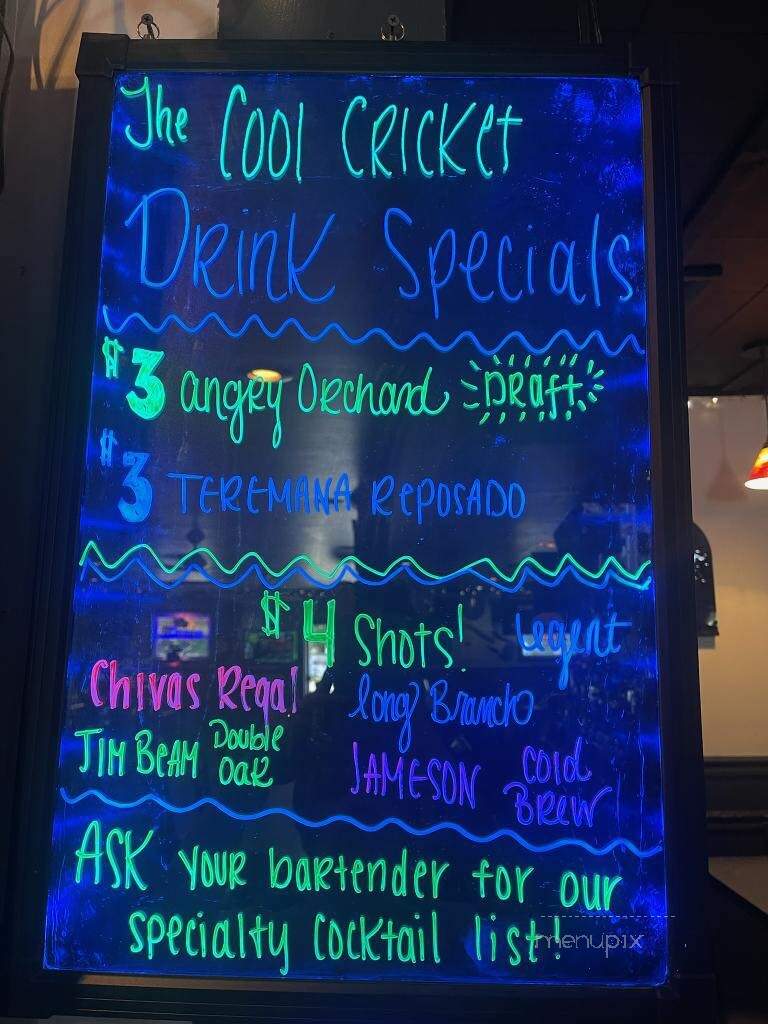 The Cool Cricket
Drink Specials
$3 Angry Orchard Draft
$3 TEREMANA REPOSADO
$4 Shots! Legent
Chivas Regal Long Branch
JIM BEAM Double Oak JAMESON Cold Brew
ASK your bartender for our
specialty cocktail list!
menupix